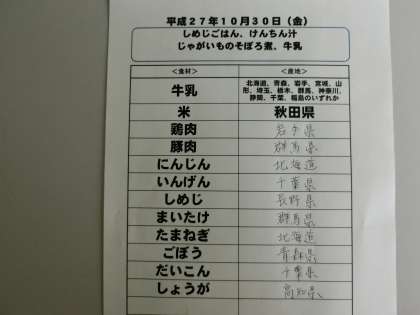 平成27年10月30日(金)
しめじごはん、けんちん汁
じゃがいものそぼろ煮、牛乳
<食材> <産地>
牛乳 北海道、青森、岩手、宮城、山
形、埼玉、栃木、群馬、神奈川、
静岡、千葉、福島のいずれか
米 秋田県
鶏肉 岩手県
豚肉 群馬県
にんじん 北海道
いんげん 千葉県
しめじ 長野県
まいたけ 群馬県
たまねぎ 北海道
ごぼう 青森県
だいこん 千葉県
しょうが 高知県